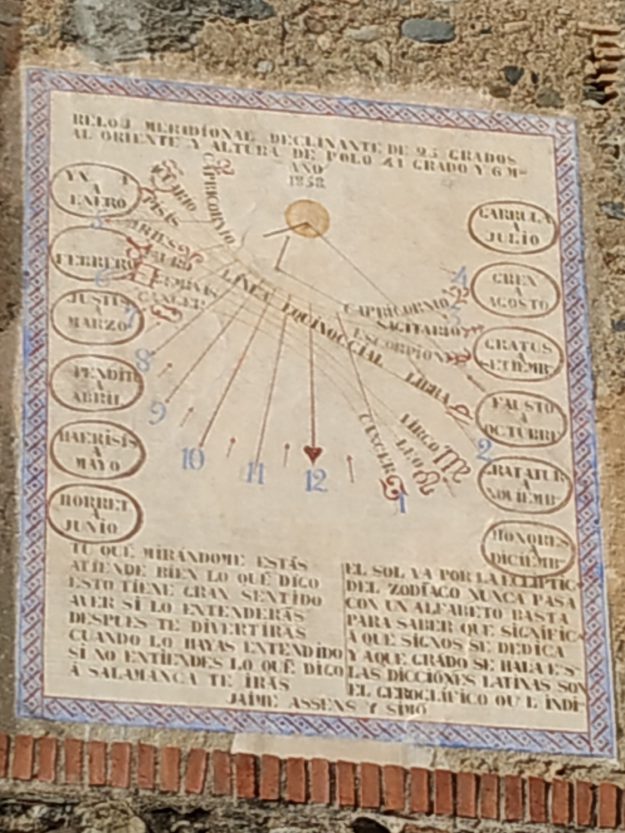 RELOJ MERIDIONAL DECLINANTE DE 25 GRADOS
AL ORIENTE Y ALTURA DE POLO 41 GRADO Y 6 M
AÑO
1858
A
ENERO
FEBRERO
JUSTIS
A
MARZO
PENDIT
A
ABRIL
HAERISIS
A
MAYO
HORRET
A
JUNIO
GARRULA
A
JULIO
GREX
A
AGOSTO
GRATUS
A
SETIEMB
FAUSTO
A
OCTUBRE
GRATATUR
A
NOUIEMB
HONORES
A
DICIEMB
CAPRICORNIO
PISIS
ARIES
TAURO
CANCER
LINEA EQUINOCCIAL
CAPRICORNIO
SAGITARIO
ESCORPION
LIBRA
VIRGO
LEO
CANCER
5
6
7
8
9
10
11
12
1
2
4
TU QUE MIRÁNDOME ESTÁS
ATIENDE BIEN LO QUE DIGO
ESTO TIENE GRAN SENTIDO
AVER SI LO ENTENDERÁS
DESPUES TE DIVERTIRÁS
CUANDO LO HAYAS ENTENDIDO
SI NO ENTIENDES LO QUE DIGO
Á SALAMANCA TE IRÁS
EL SOL VA POR LA ECLIPTIC
DEL ZODÍACO NUNCA PASA
CON UN ALFABETO BASTA
PARA SABER QUE SIGNIFICA
A QUE SIGNOS SE DEDICA
Y AQUE GRADO SE HALA ES
LAS DICCIÓNES LATINAS SON
EL GEROGLÍFICO QU E INDI
JAIME ASSENS Y SIMÓ